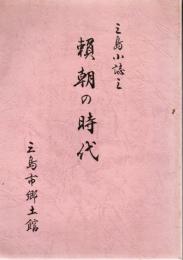 三島小誌之三
頼朝の時代
三島市郷土館